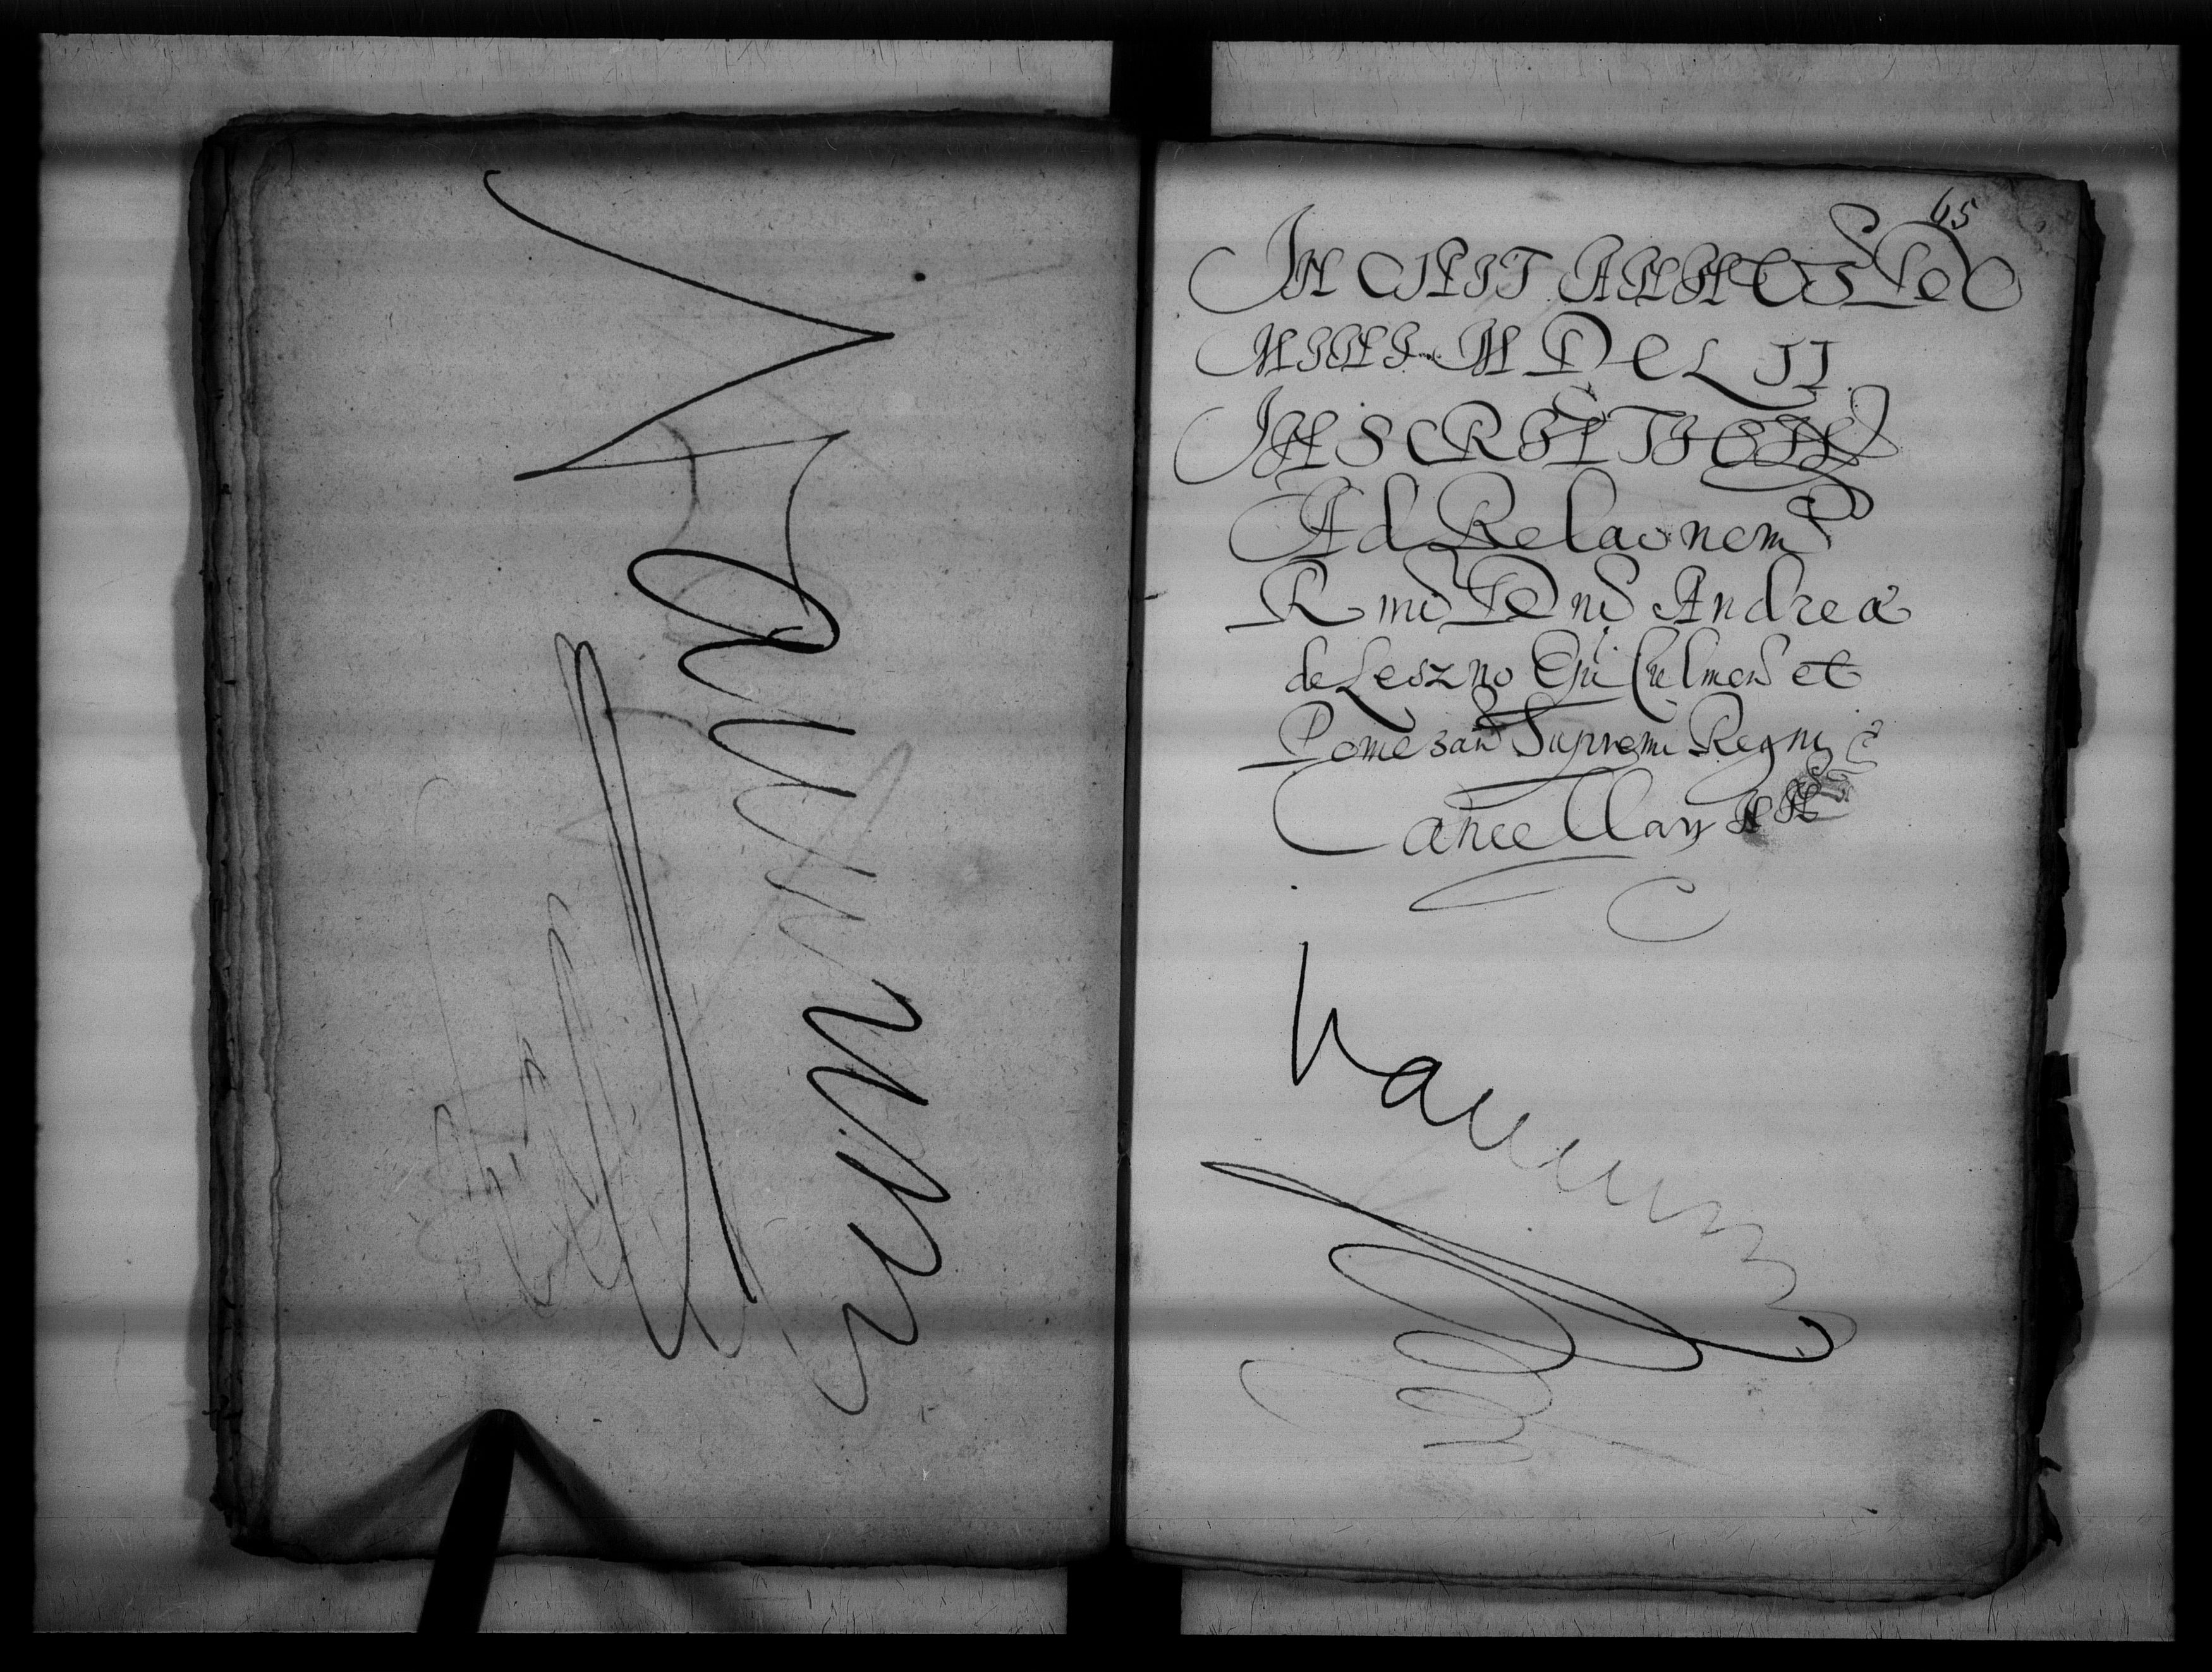 65
INCIPIT ANNUS DO
MINI MDCLII
INSCRIPTION
Ad Relaonem
Rmi Dni Andreæ
de Leszno Epi Culmen et
Pomezan Supremi Regni
Cancellarij
Vacuum
Vacuum